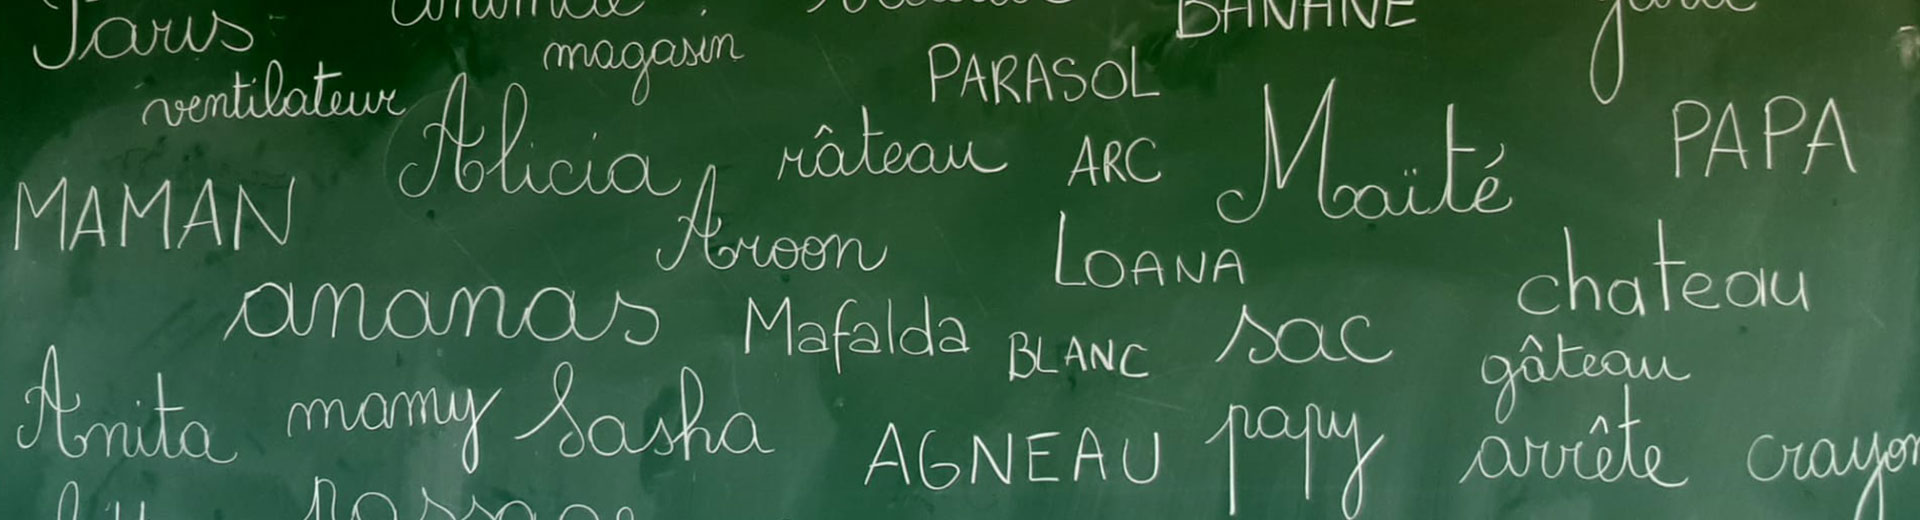 Paris BANANE
magasin PARASOL
ventilateur Alicia râteau ARC Maïté PAPA
MAMAN Aroon LOANA chateau
ananas Mafalda BLANC sac gâteau
Anita mamy Sasha AGNEAU papy arrête crayon